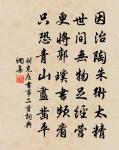 因治陶朱術太精
世間無物足經營
更將郭璞書頻看
只恐青山盡鑿平
劉克莊書事二首詞典
網集